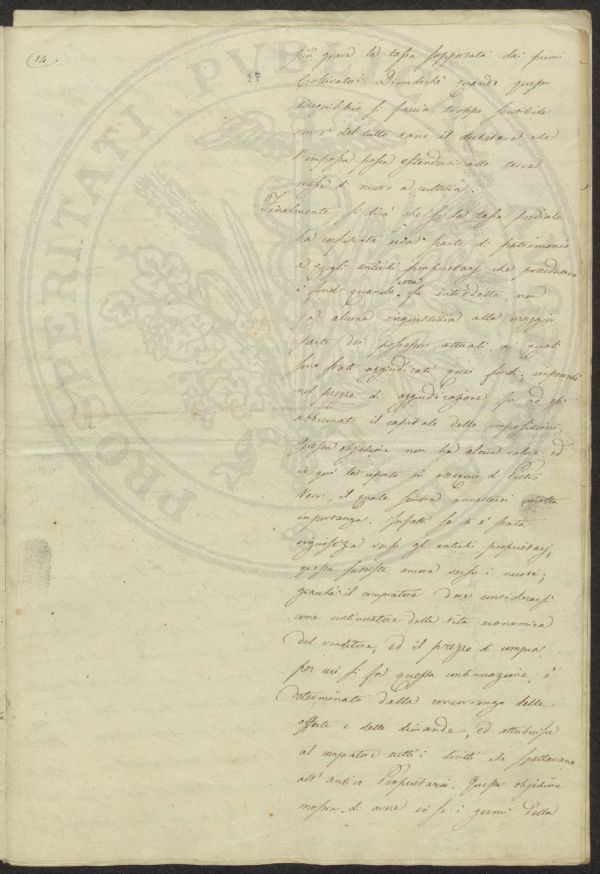 14
17
più grave la tassa sopportata dai primi
Coltivatori. Dimodochè quando questo
disequilibrio si faccia troppo sensibile
non è del tutto vano il dubitare che
l'imposta possa estendersi alle terre
messe di nuovo a cultura.
Finalmente si dirà che se la tassa prediale
ha confiscata una parte di patrimonio
a quegli antichi proprietarj che possedevano
i fondi quando essa fu introdotta non
fa alcuna ingiustizia alla maggior
parte dei possessori attuali, ai quali
sono stati aggiudicati quei fondi;
nel prezzo di aggiudicazione fu ad essi
abbuonato il capitale delle imposizioni.
Questa objezione non ha alcun valore ed
io qui la riporto in ossequio di Pietro
Verri, il quale sembra annettervi molta
importanza. Infatti se vi è stata
ingiustizia verso gli antichi proprietarj,
questa sussiste ancora verso i nuovi;
giacchè il compratore deve considerarsi
come continuatore della vita economica
del venditore, ed il prezzo di compra
per cui si fa questa continuazione, è
determinato dalla concorrenza delle
offerte e delle dimande, ed attribuisce
al compratore tutti i diritti che spettavano
all'antico Proprietario. Questa objezione
mostra di avere in se i germi della
PROSPERITATI PUBL